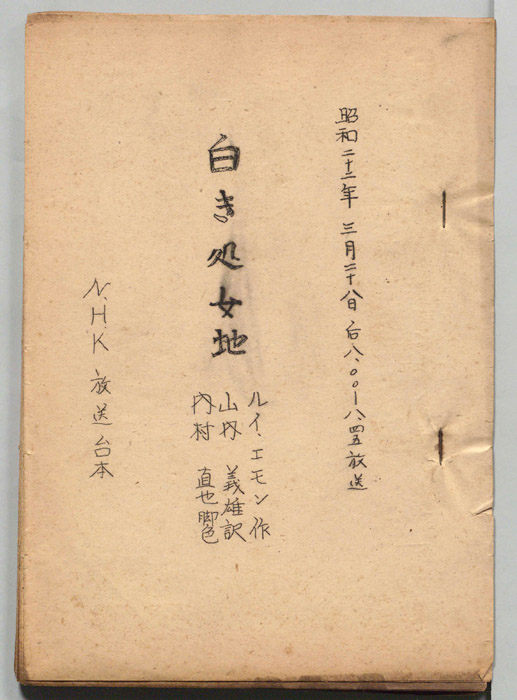 昭和二十二年 三月二十八日 后八.〇〇―八.四五放送
白き処女地
ルイ.エモン作
山内 義雄訳
内村 直也脚色
N.H.K 放送台本